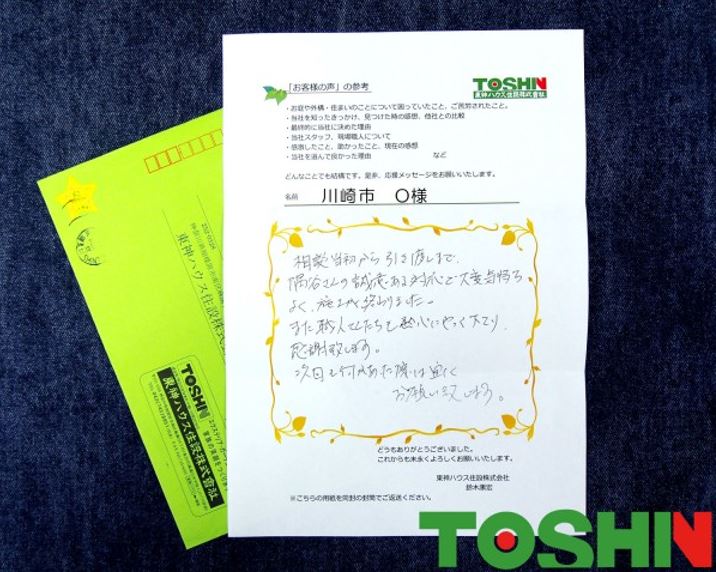 「お客様の声」の参考
TOSHIN
東神ハウス住設株式会社
・お庭や外構・住まいのことについて困っていたこと、ご苦労されたこと。
・当社を知ったきっかけ、見つけた時の感想、他社との比較
・最終的に当社に決めた理由
・当社スタッフ、現場職人について
・感激したこと、助かったこと、現在の感想
・当社を選んで良かった理由 など
どんなことでも結構です。是非、応援メッセージをお願いいたします。
名前 川崎市 O様
相談当初から引き渡しまで、
隅谷さんの誠意ある対応で大変気持ち
よく、施工が終わりました。
また職人さんたちも熱心にやって下り、
感謝致します。
次回も何かあった際は宜しく
お願い致します。
どうもありがとうございました。
これからも末永くよろしくお願いいたします。
東神ハウス住設株式会社
鈴木康宏
※こちらの用紙を同封の封筒でご返送ください。
東神ハウス住設株式会
TOSHIN
東神ハウス住設株式会社
TOSHIN